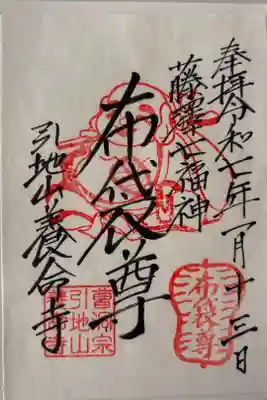 奉拝令和二年一月十三日
藤澤七福神
布袋尊
引地山養命寺
布袋尊
曹洞宗
引地山
養命寺